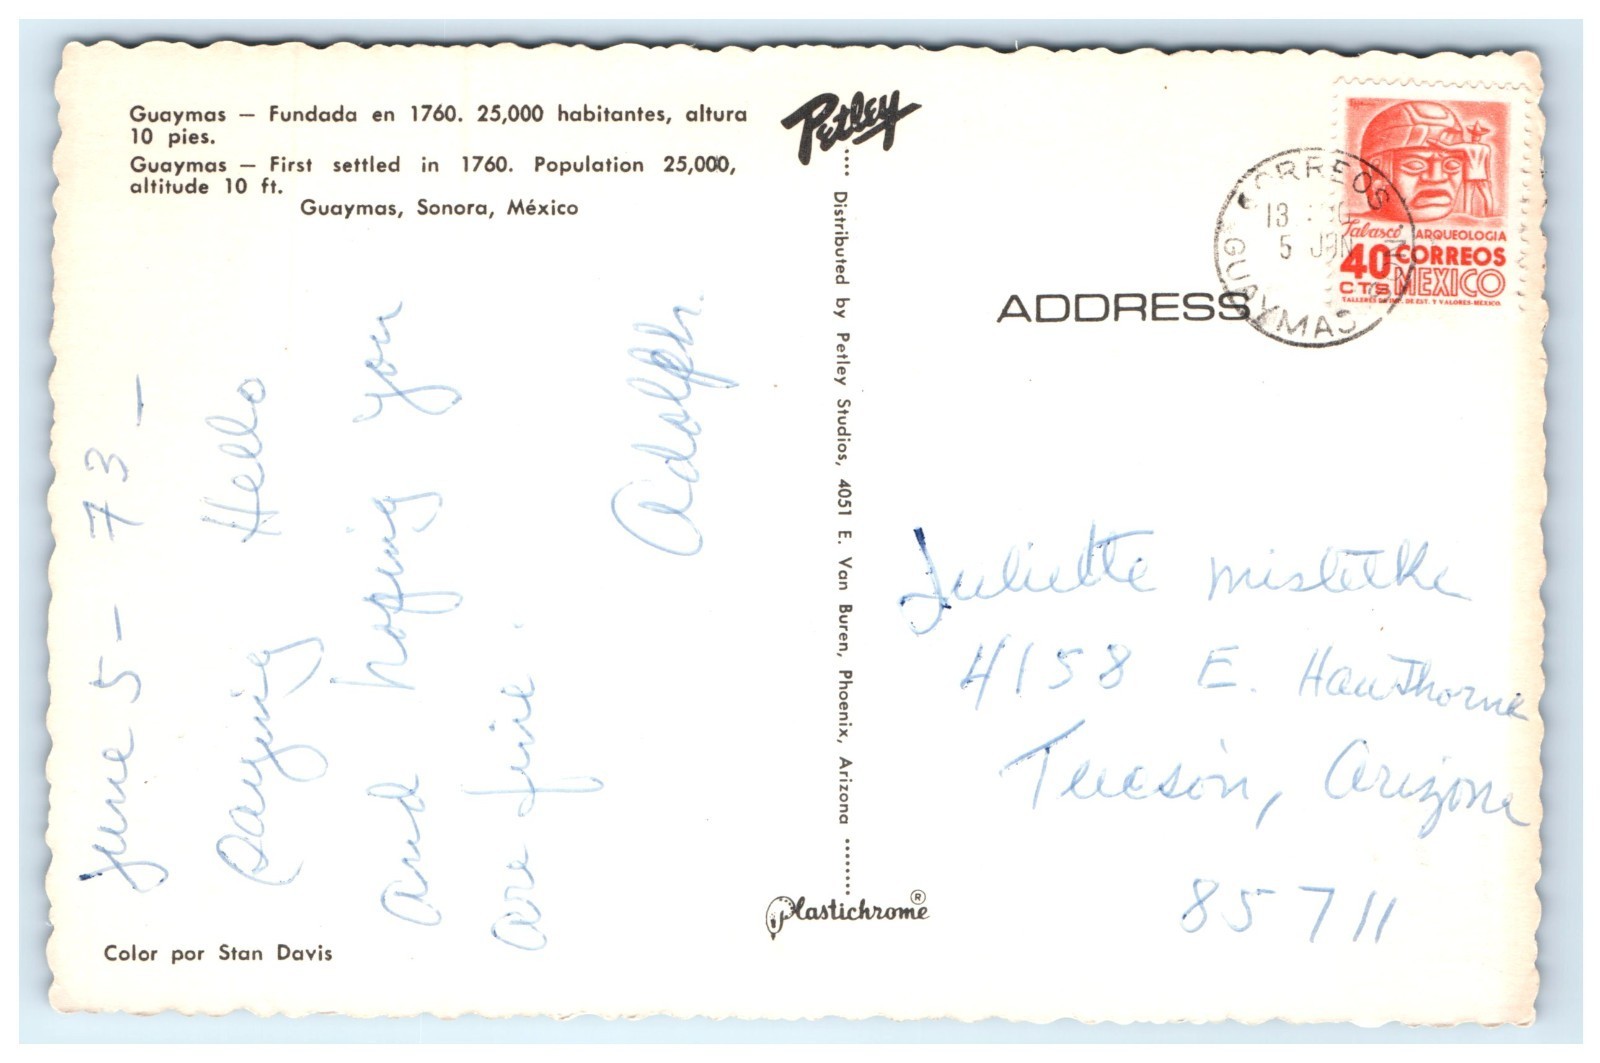 Guaymas — Fundada en 1760. 25,000 habitantes, altura
10 pies.
Guaymas — First settled in 1760. Population 25,000,
altitude 10 ft.
Guaymas, Sonora, México
June 5 - 73 -
Saying Hello
and hoping you
are fine.
Adolph.
Color por Stan Davis
Petley
Distributed by Petley Studios, 4051 E. Van Buren, Phoenix, Arizona
Plastichrome ®
ADDRESS
CORREOS
13
5 JUN
GUAYMAS
Tabasco ARQUEOLOGIA
40 CORREOS
CTS MEXICO
TALLERES DE IMP. DE EST. Y VALORES-MEXICO.
Juliette
4158 E. Hawthorne
Tucson, Arizona
85711